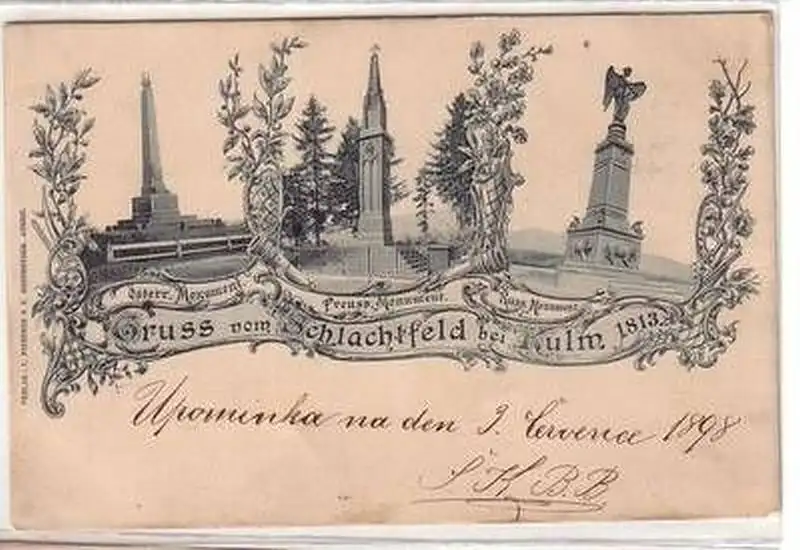 Österr. Monument.
Preuss. Monument.
Russ. Monument.
Gruss vom Schlachtfeld bei Kulm 1813.
Upomínka na den 3. Července 1898
VERLAG